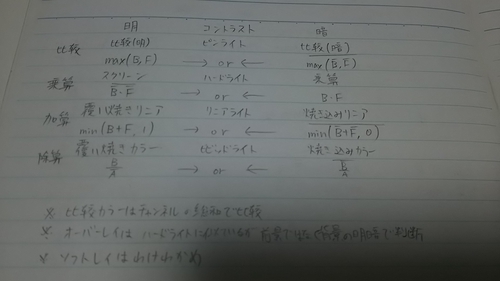 明 コントラスト 暗
比較 比較(明) ピンライト 比較(暗)
max(B,F) → or ← max(B,F)
乗算 スクリーン ハードライト 乗算
B・F → or ← B・F
加算 覆い焼きリニア リニアライト 焼き込みリニア
min(B+F, 1) → or ← min(B+F, 0)
除算 覆い焼きカラー ビビッドライト 焼き込みカラー
B/A → or ← B/A
※ 比較カラーはチャンネルの総和で比較
※ オーバーレイは ハードライトににているが 背景の明暗で判断
※ ソフトレイはわけわかめ